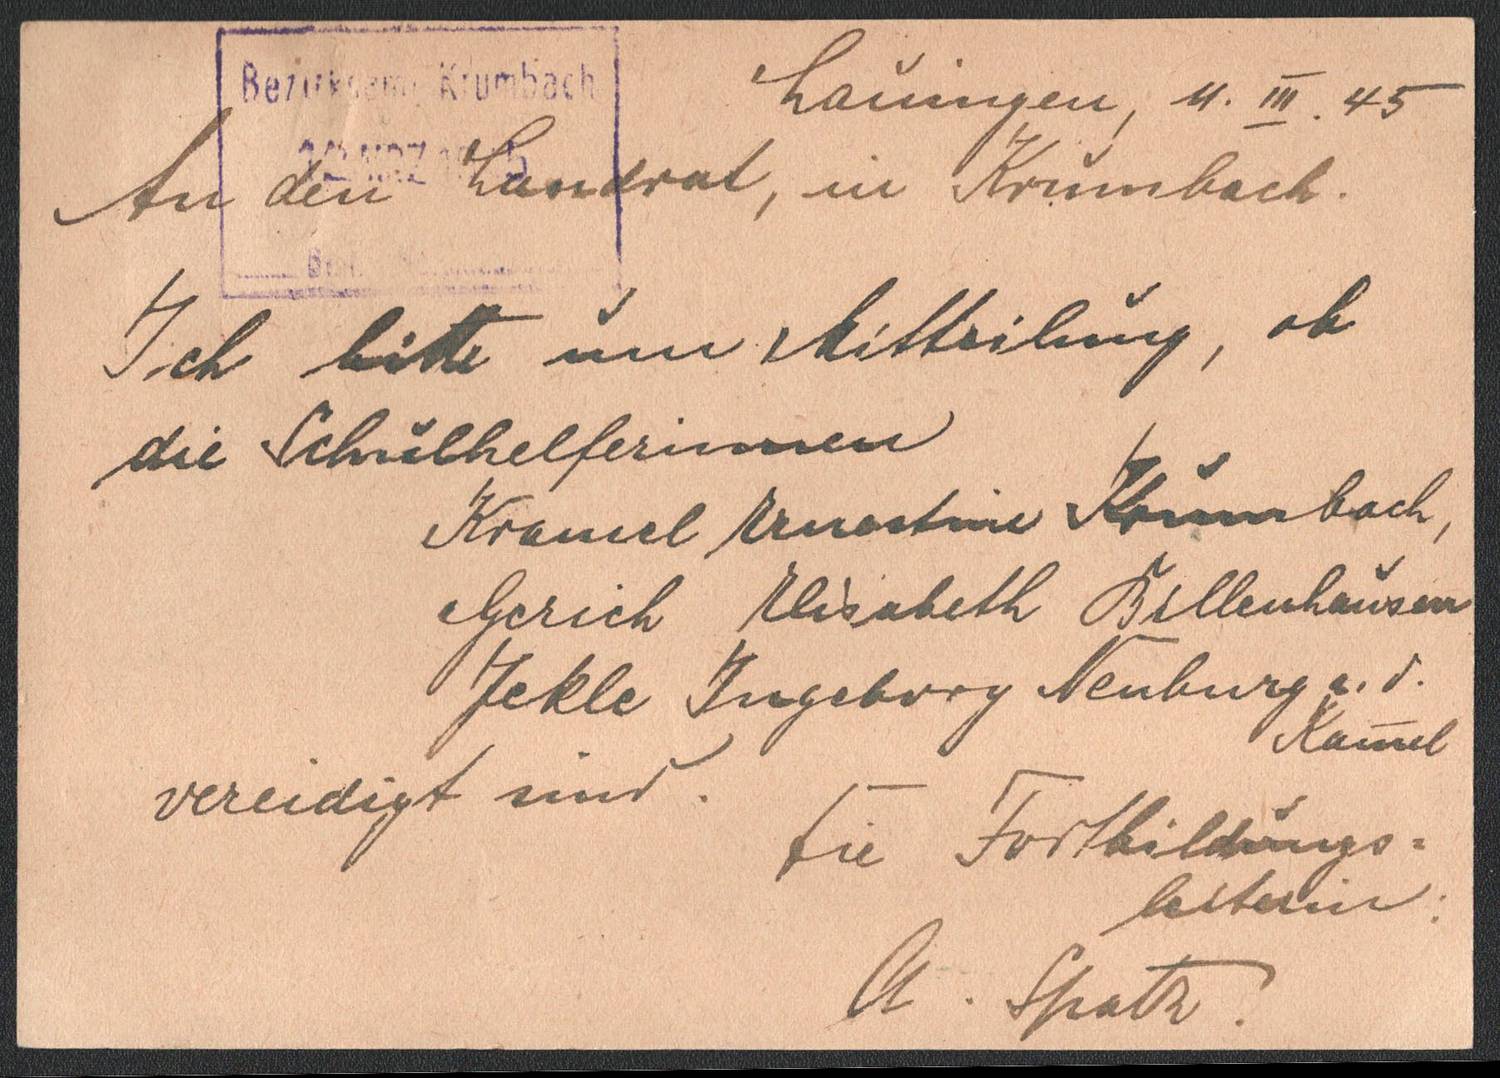 Bezirksamt Krumbach
Lauingen, 11. III. 45
MRZ
An den Landrat, in Krumbach.
Ich bitte um Mitteilung, ob
die Schulhelferinnen
Kramel Ernestine Krumbach,
Gerich Elisabeth Billenhausen
Jekle Ingeborg Neuburg a. d.
Kammel
vereidigt sind.
Die Fortbildungs=
leiterin:
A. Spatz.